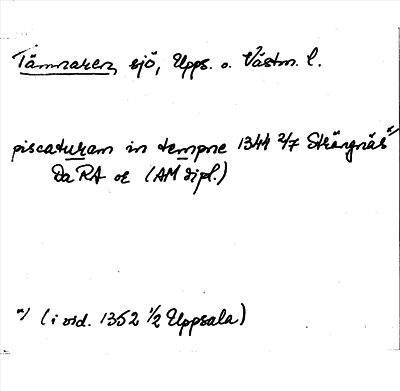 Tämnaren, sjö, Upps. o. Västm. l.
piscaturam in tempne 1344 2/7 Strängnäs*)
Da RA or (AM dipl.)
*) (i vid. 1352 1/2 Uppsala)